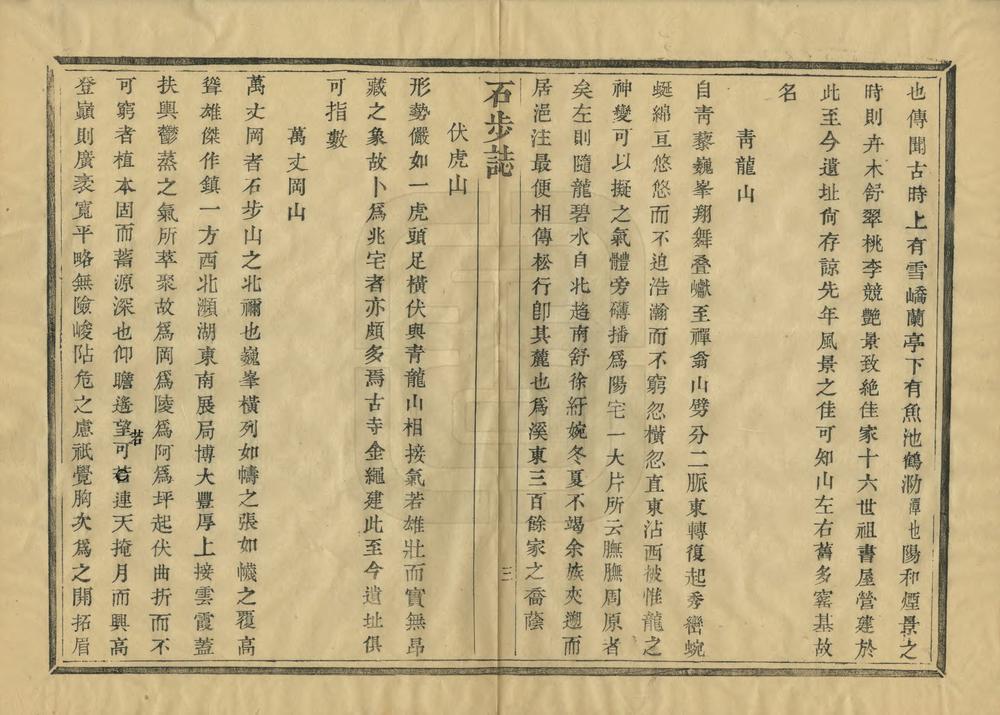 也傳聞古時上有雪嶠蘭亭下有魚池鶴泐潭也陽和煙景之
時則卉木舒翠桃李競艷景致絶佳家十六世祖書屋營建於
此至今遺址尙存諒先年風景之佳可知山左右舊多窰基故
名
靑龍山
自靑藜巍峯翔舞叠巘至禪翁山劈分二脈東轉復起秀巒蜿
蜒綿亘悠悠而不迫浩瀚而不窮忽橫忽直東沾西被惟龍之
神變可以擬之氣體旁礴播爲陽宅一大片所云膴膴周原者
矣左則隨龍碧水自北趨南舒徐紆婉冬夏不竭余族夾遡而
居浥注最便相傳松行卽其麓也爲溪東三百餘家之喬蔭
石步誌
三
伏虎山
形勢儼如一虎頭足橫伏與青龍山相接氣若雄壯而實無昂
藏之象故卜爲兆宅者亦頗多焉古寺金繩建此至今遺址俱
可指數
萬丈岡山
萬丈岡者石步山之北禰也巍峯橫列如幬之張如幭之覆高
聳雄傑作鎭一方西北瀕湖東南展局博大豐厚上接雲霞蓋
扶輿鬱蒸之氣所萃聚故爲岡爲陵爲阿爲坪起伏曲折而不
可窮者植本固而蓄源深也仰瞻遙望可若連天掩月而興高
登巔則廣袤寬平略無險峻阽危之慮祇覺胸次爲之開拓眉